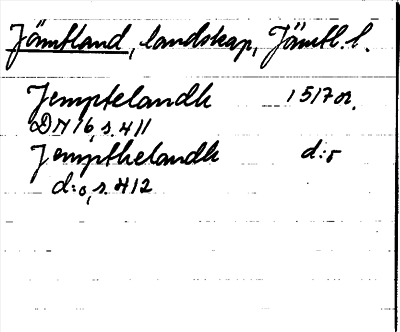 Jämtland, landskap, Jämtl. l.
Jemptelandh 1517 or.
DN 16, s. 411
Jempthelandh d:o
d:o, s. 412